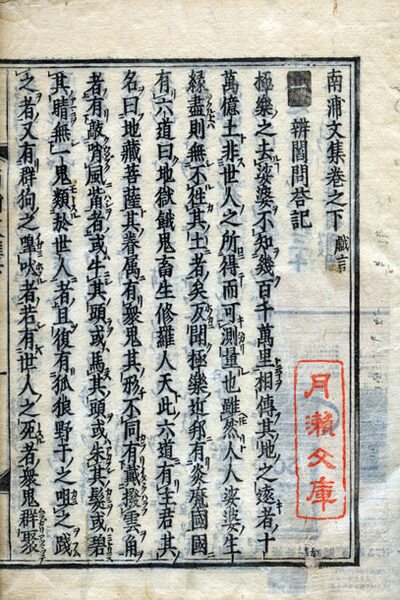 南浦文集卷之下 戲言
辨閻問答記
極樂之去娑婆不知幾百千萬里相傳其地之遠者十
萬億土非世人之所得而可測量也雖然人人娑婆生
緣盡則無不往其土者矣又聞極樂近邦有炎魔國國
有六道曰地獄餓鬼畜生修羅人天此六道有主君其
名曰地藏菩薩其眷属有衆鬼其形不同有戴撥雲角
者有敲啃風觜者或牛其頭或馬其頭或朱其髮或碧
其睛無一鬼類於世人者且復有狐狼野干之咀之踐
之者又有群狗之嘷吠者若有世人之死者衆鬼群聚
月瀬文庫